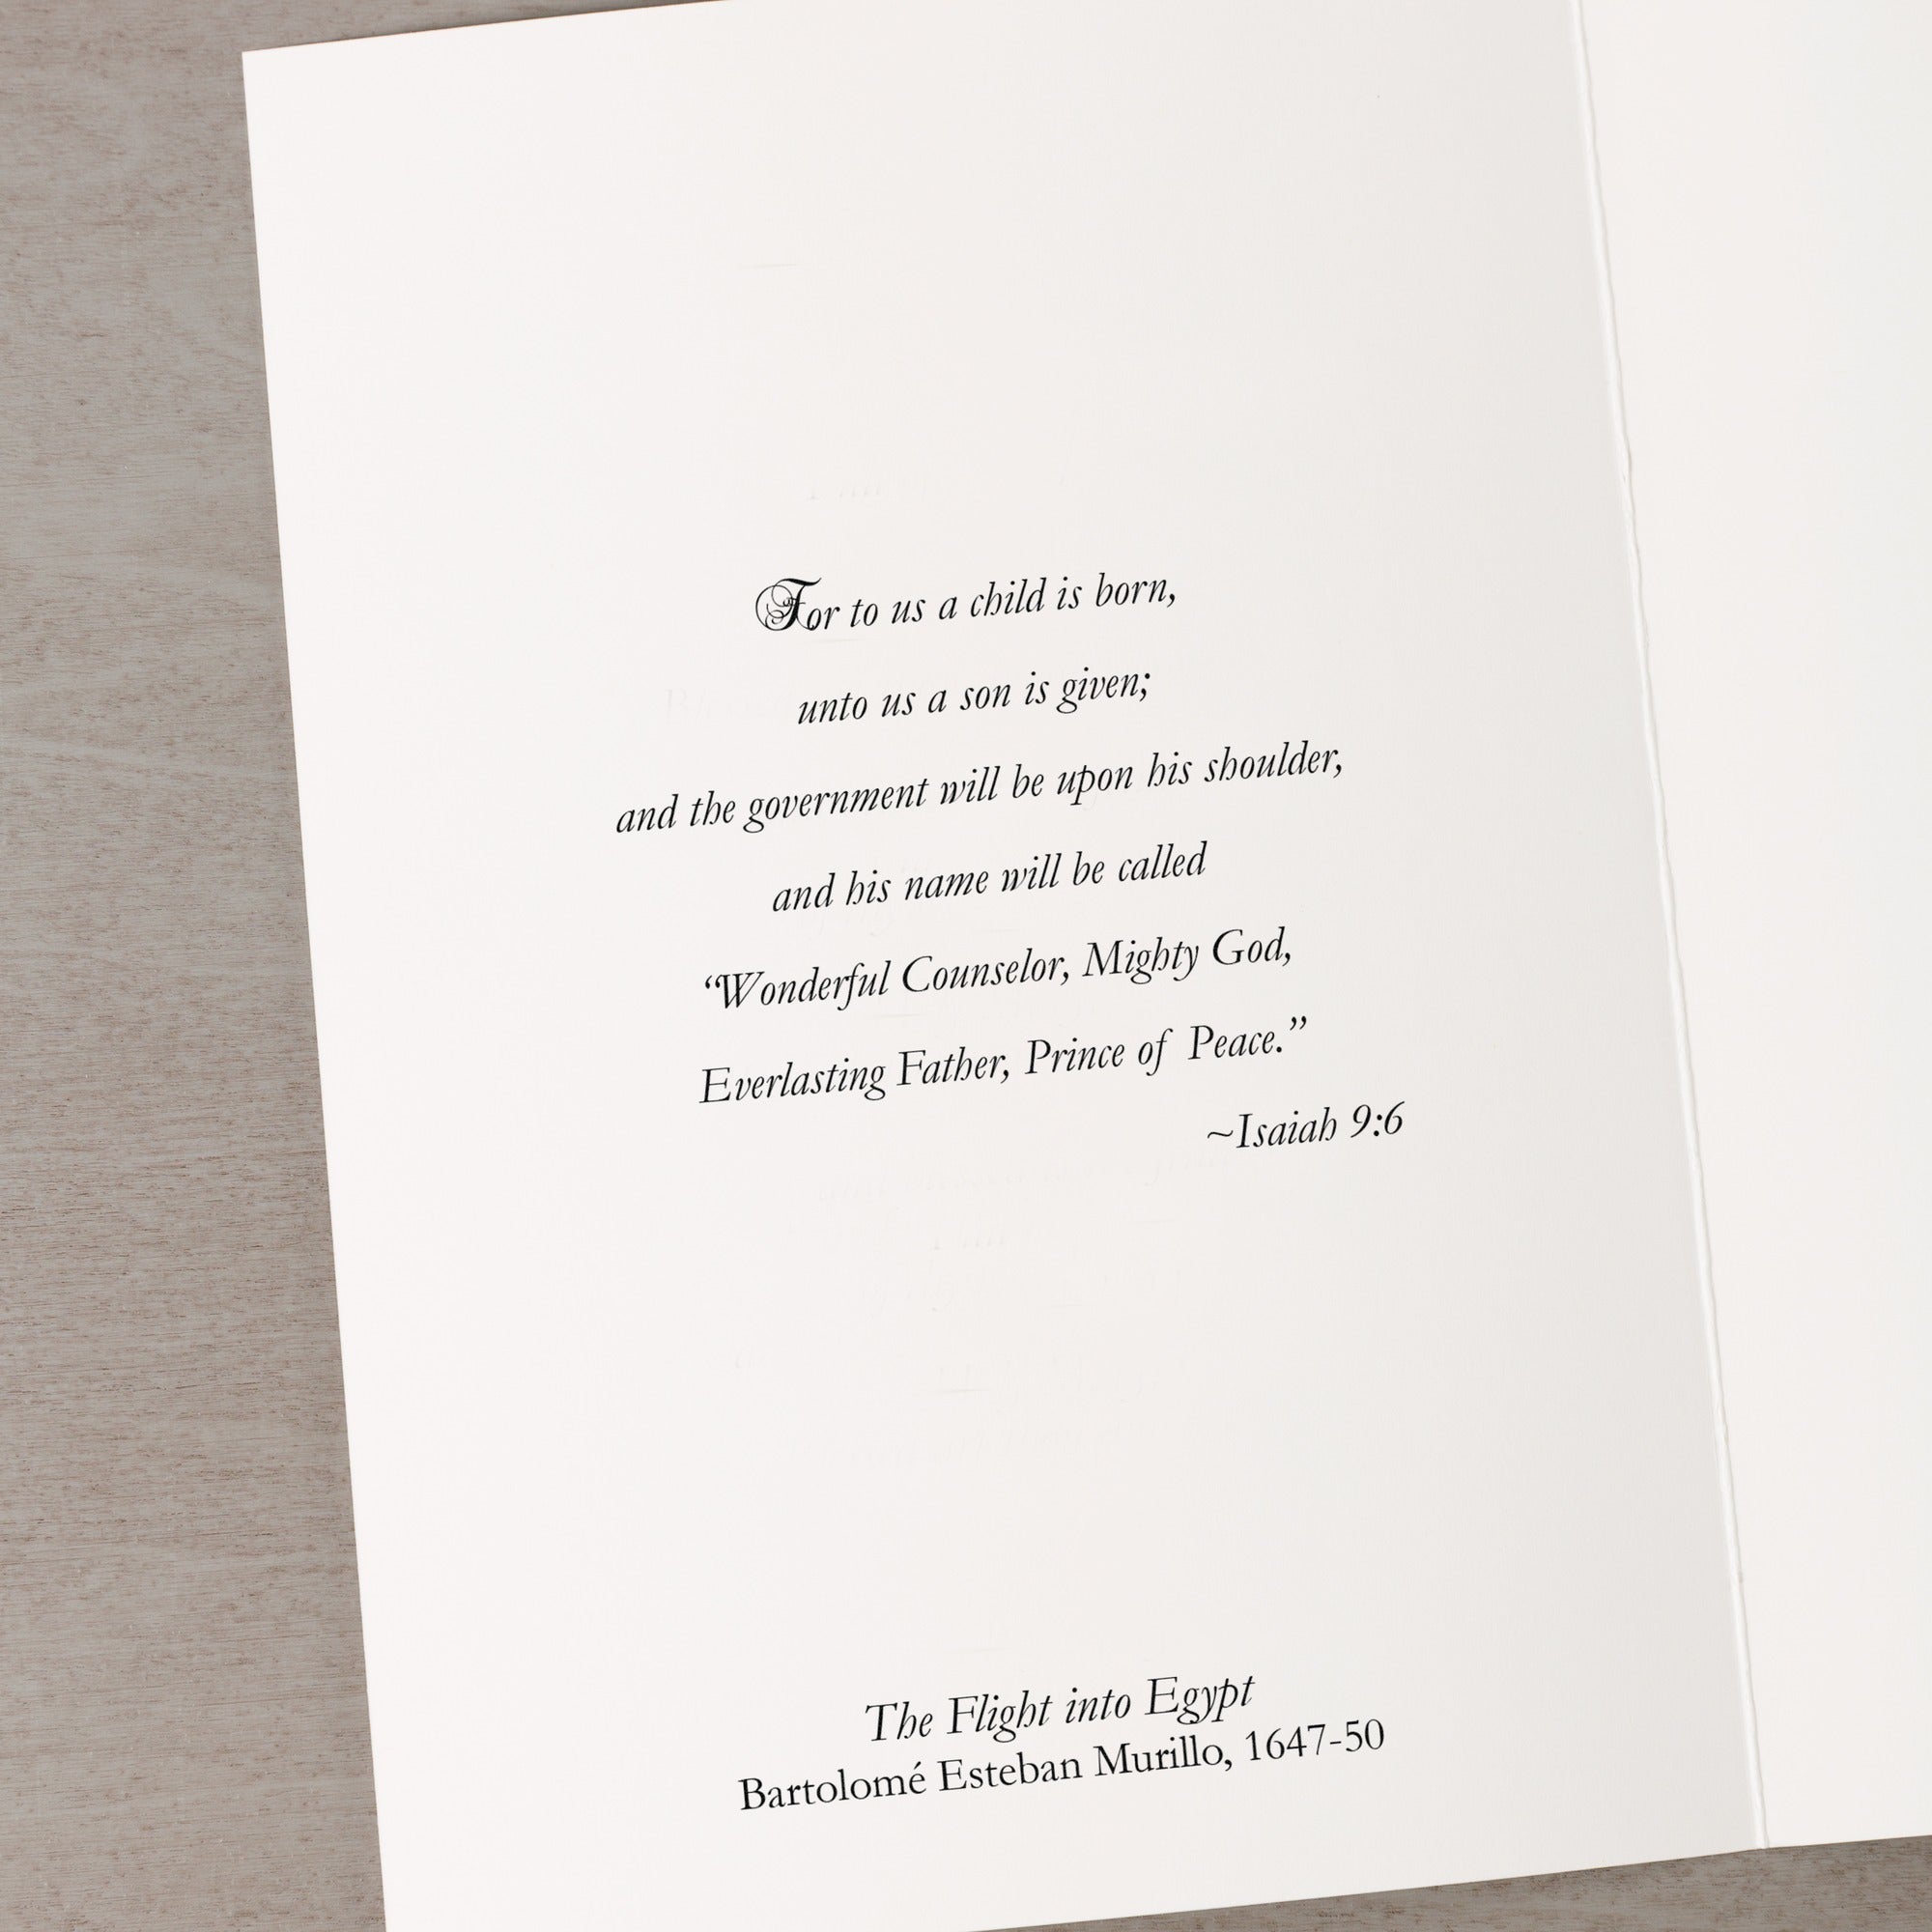 For to us a child is born,
unto us a son is given;
and the government will be upon his shoulder,
and his name will be called
“Wonderful Counselor, Mighty God,
Everlasting Father, Prince of Peace.”
~Isaiah 9:6
The Flight into Egypt
Bartolomé Esteban Murillo, 1647-50